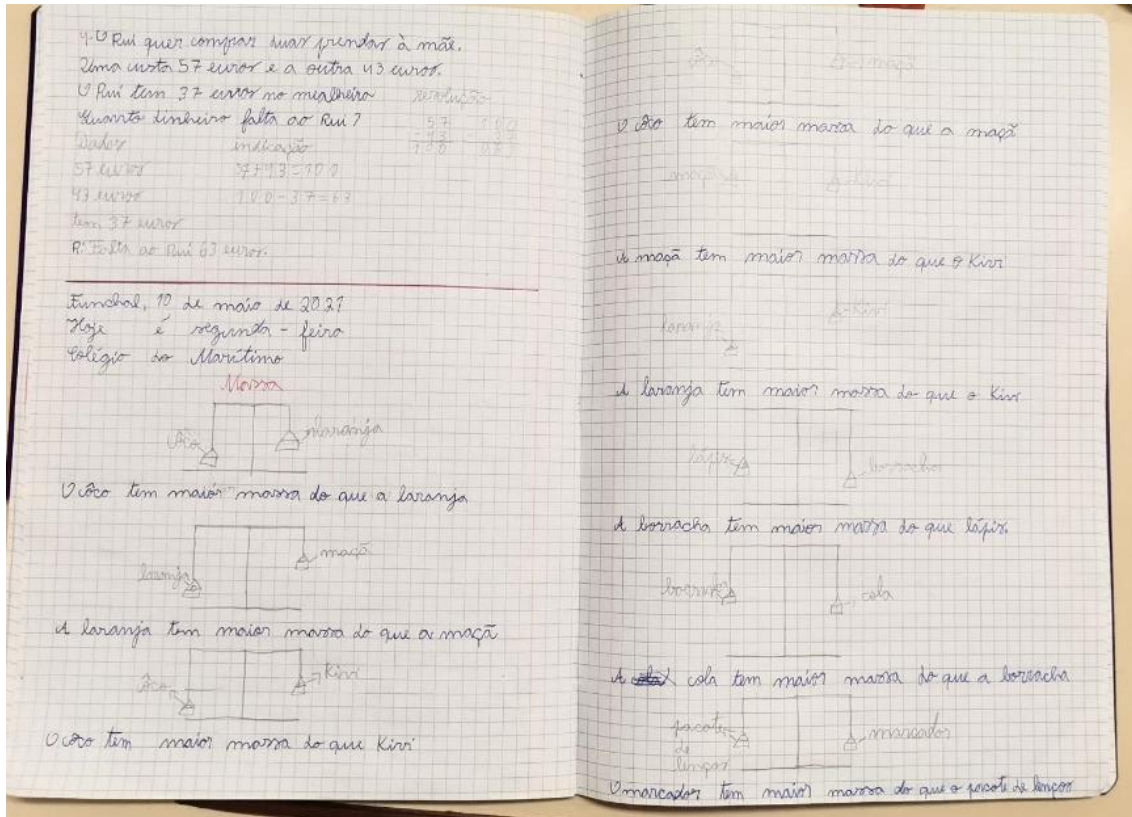 4-O Rui quer comprar duas prendas à mãe.
Uma custa 57 euros e a outra 43 euros.
O Rui tem 37 euros no mealheiro
resolução
Quanto dinheiro falta ao Rui?
57 100
Dados indicação
100 063
57 euros 57+43=100
43 euros 100-37=63
tem 37 euros
R: Falta ao Rui 63 euros.
Funchal, 10 de maio de 2021
Hoje é segunda-feira
Colégio do Marítimo
Massa
côco laranja
O côco tem maior massa do que a laranja
laranja maçã
A laranja tem maior massa do que a maçã
côco Kivi
O côco tem maior massa do que Kivi
côco maçã
O côco tem maior massa do que a maçã
maçã Kivi
A maçã tem maior massa do que o Kivi
laranja Kivi
A laranja tem maior massa do que o Kivi
lápis borracha
A borracha tem maior massa do que lápis.
borracha cola
A cola tem maior massa do que a borracha
pacote de lenços marcador
O marcador tem maior massa do que o pacote de lenços